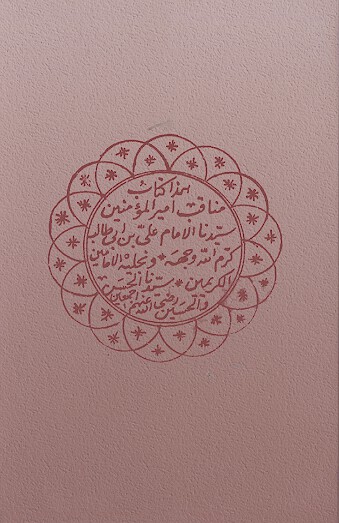 هذا كتاب
مناقب أمير المؤمنين
سيدنا الامام على بن ابى طالب
كرم الله وجهه * ونجليه الامامين
الكريمين * سيدنا الحسن
والحسين رضى الله عنهم اجمعين